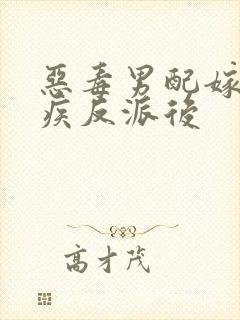 惡毒男配嫁
疾反派後
高才茂